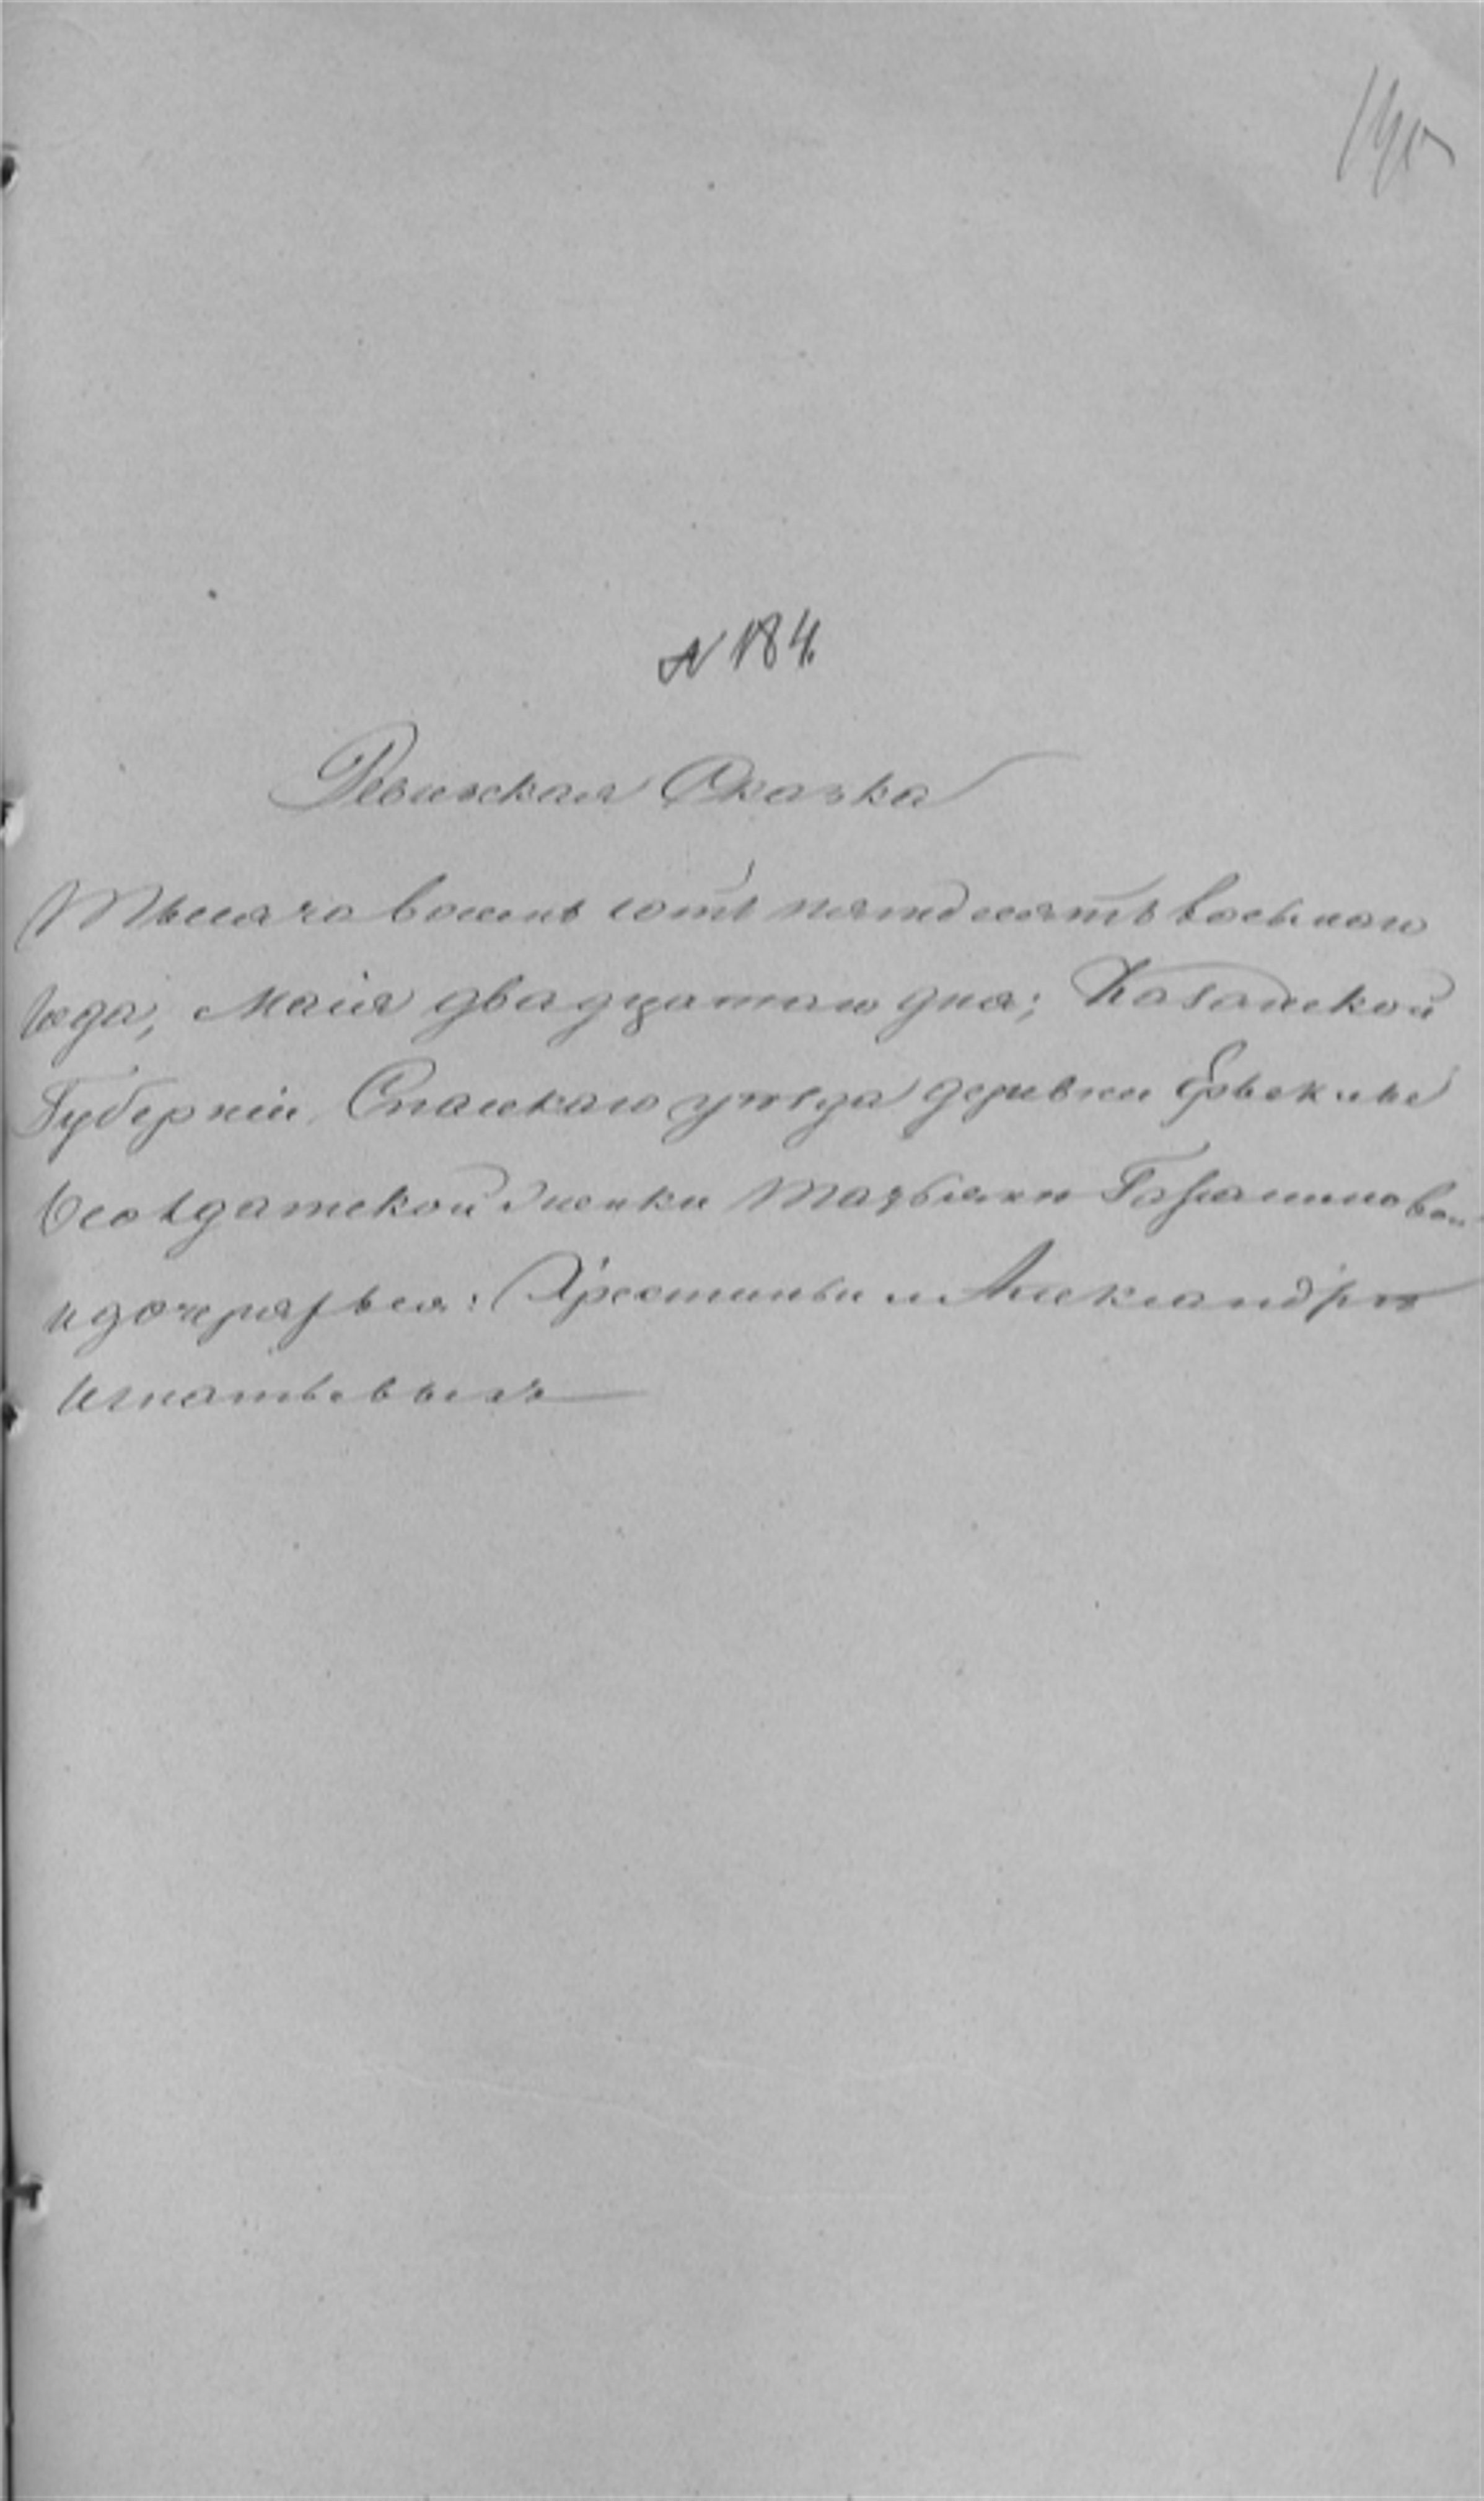 N 184.
Ревижская Сказка
Тысяча восемь сотъ пятьдесятъ восьмаго
года, Маія двадцатаго дня; Казанской
Губерніи Спаскаго уезда деревни
солдатской женки
и дочерях ея: Хрестиньи и Александры
Игнатьевыхъ